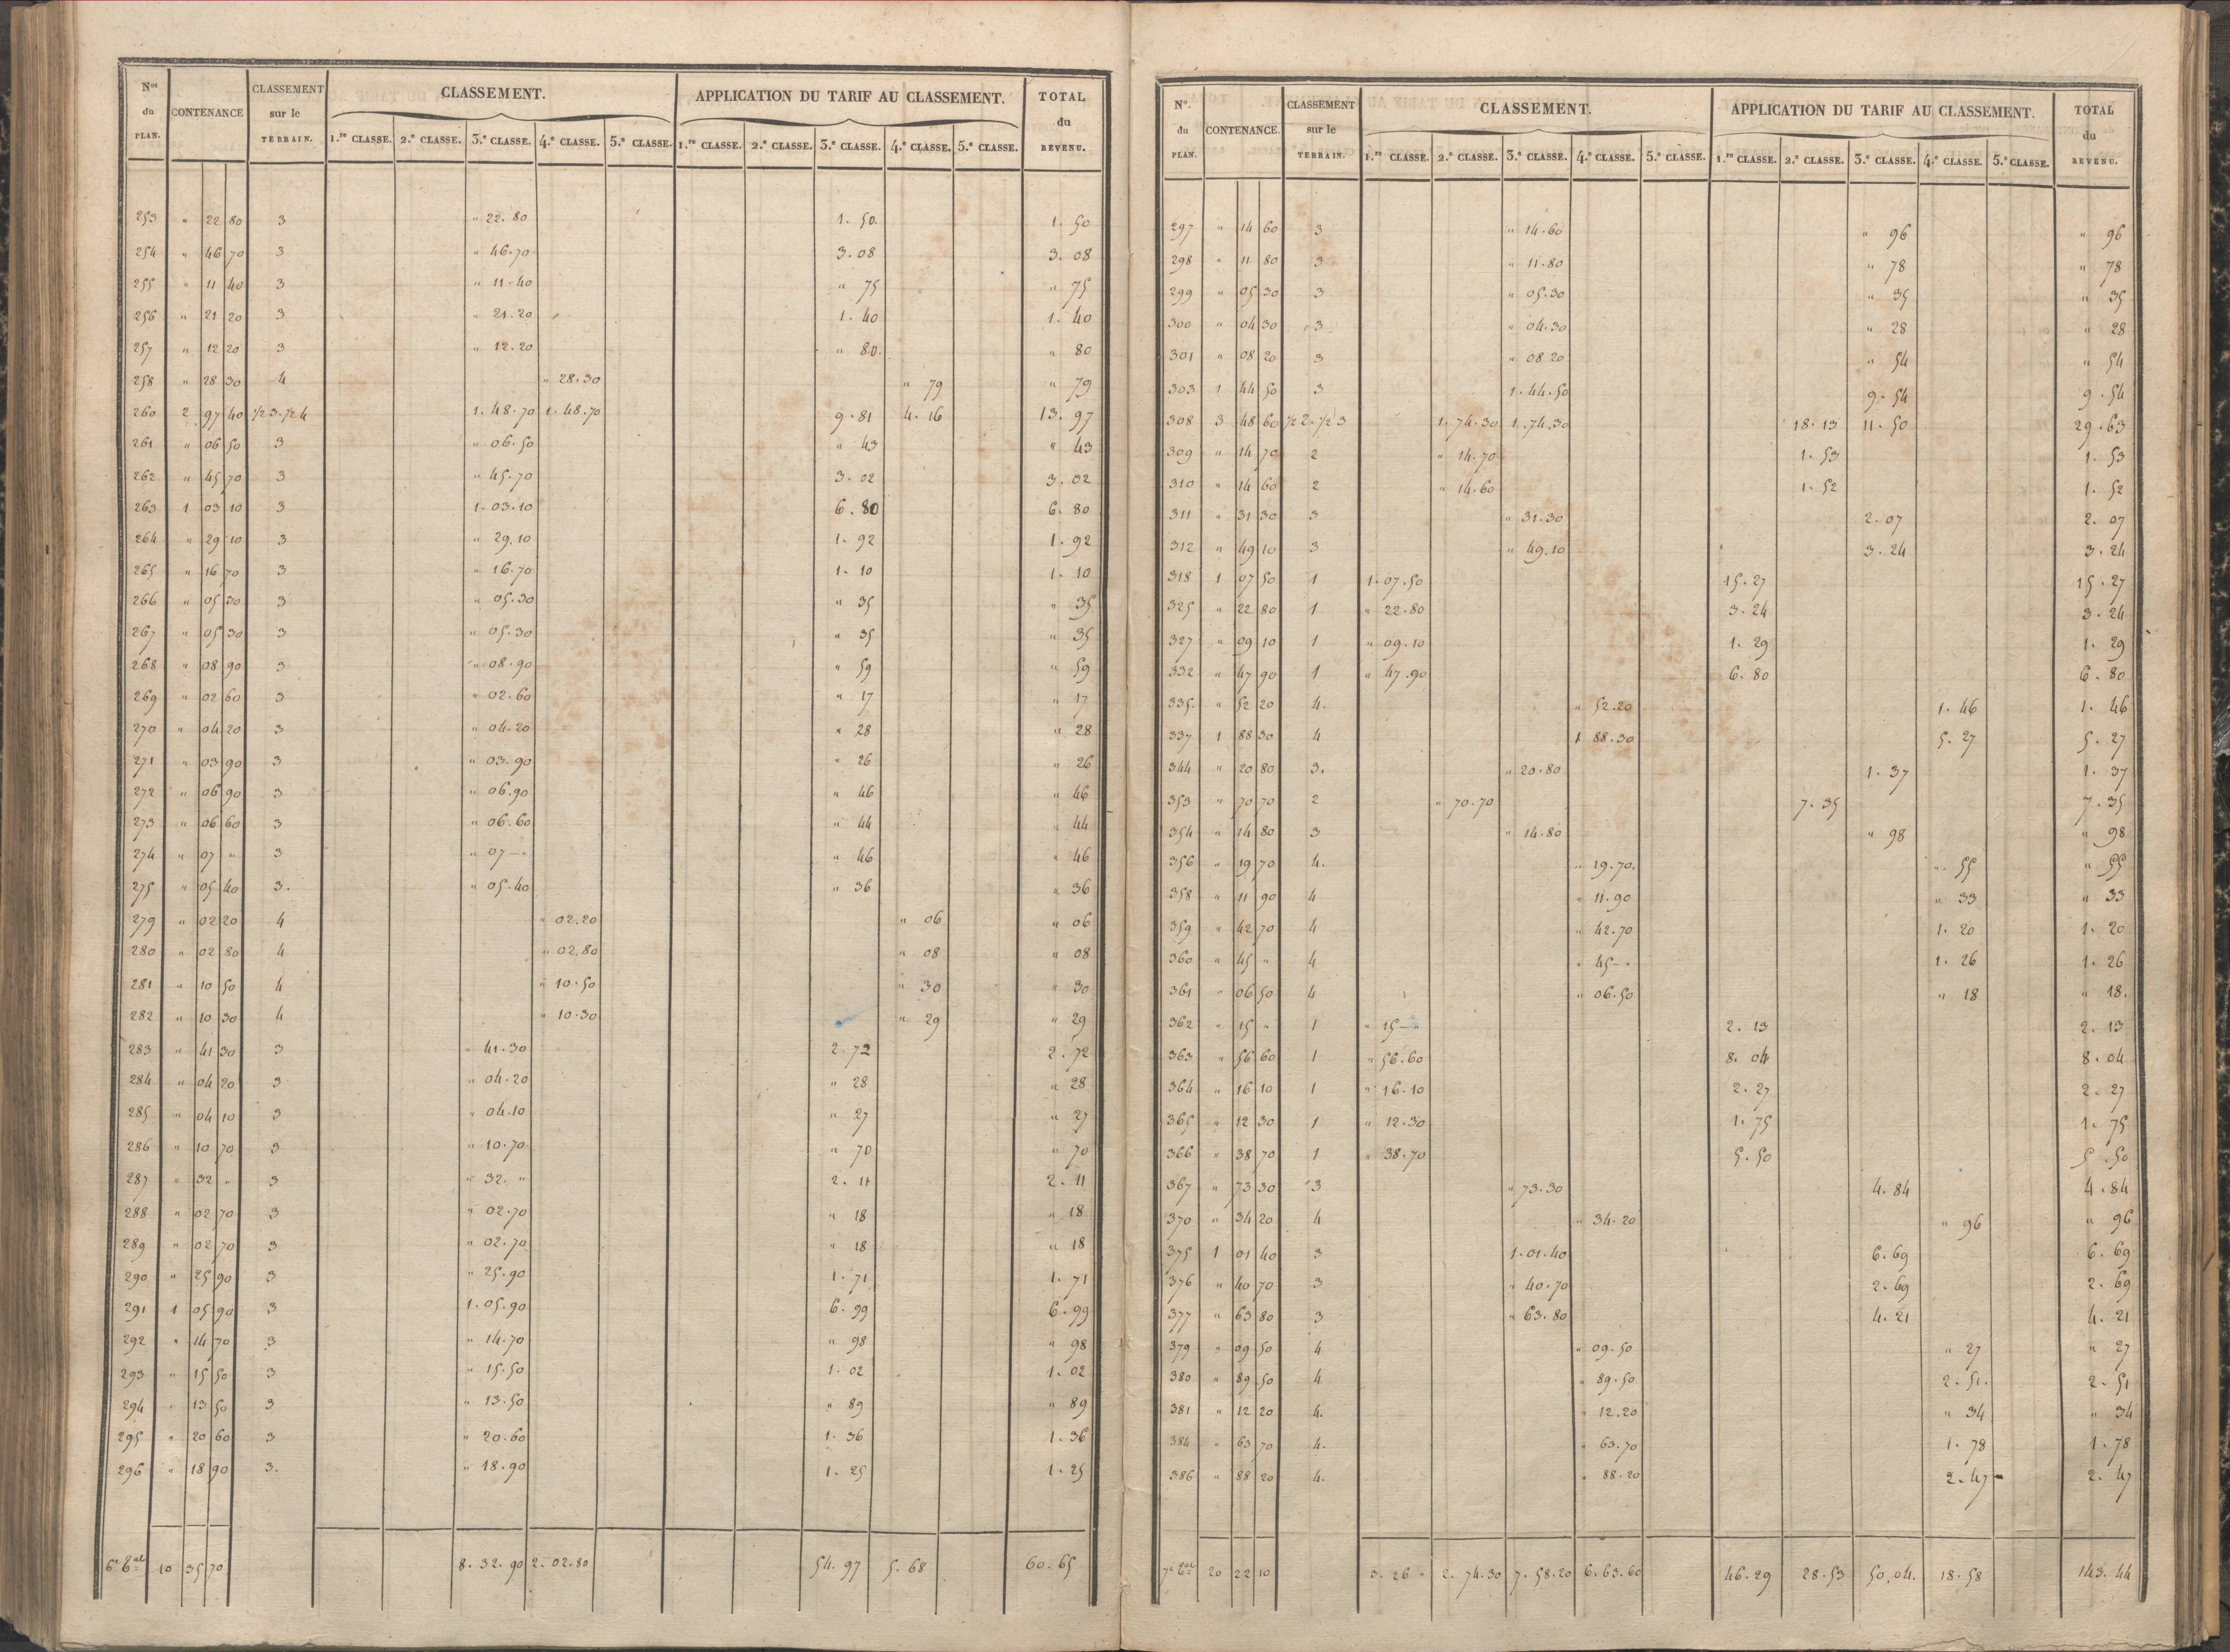 Nos du PLAN. CONTENANCE CLASSEMENT sur le TERRAIN. CLASSEMENT. APPLICATION DU TARIF AU CLASSEMENT. TOTAL du REVENU.
1.re CLASSE. 2.e CLASSE. 3.e CLASSE. 4.e CLASSE. 5.e CLASSE. 1.re CLASSE. 2.e CLASSE. 3.e CLASSE. 4.e CLASSE. 5.e CLASSE.
253 " 22 80 3 " 22. 80 1. 50. 1. 50
254 " 46 70 3 " 46.70 3.08 3. 08
255 " 11 40 3 " 11.40 " 75 " 75
256 " 21 20 3 " 21.20 1. 40 1. 40
257 " 12 20 3 " 12.20 " 80. " 80
258 " 28 30 4 " 28.30 " 79 " 79
260 2 97 40 1/2 3. 1/2 4 1. 48.70 1. 48.70 9.81 4. 16 13. 97
261 " 06 50 3 " 06.50 " 43 " 43
262 " 45 70 3 " 45.70 3. 02 3. 02
263 1 03 10 3 1. 03.10 6. 80 6. 80
264 " 29 10 3 " 29.10 1. 92 1. 92
265 " 16 70 3 " 16.70 1. 10 1. 10
266 " 05 30 3 " 05.30 " 35 " 35
267 " 05 30 3 " 05.30 " 35 " 35
268 " 08 90 3 " 08.90 " 59 " 59
269 " 02 60 3 " 02.60 " 17 " 17
270 " 04 20 3 " 04.20 " 28 " 28
271 " 03 90 3 " 03.90 " 26 " 26
272 " 06 90 3 " 06.90 " 46 " 46
273 " 06 60 3 " 06.60 " 44 " 44
274 " 07 " 3 " 07 — " " 46 " 46
275 " 05 40 3. " 05.40 " 36 " 36
279 " 02 20 4 " 02.20 " 06 " 06
280 " 02 80 4 " 02.80 " 08 " 08
281 " 10 50 4 " 10.50 " 30 " 30
282 " 10 30 4 " 10.30 " 29 " 29
283 " 41 30 3 " 41.30 2. 72 2. 72
284 " 04 20 3 " 04.20 " 28 " 28
285 " 04 10 3 " 04.10 " 27 " 27
286 " 10 70 3 " 10.70 " 70 " 70
287 " 32 " 3 " 32. " 2. 11 2. 11
288 " 02 70 3 " 02.70 " 18 " 18
289 " 02 70 3 " 02.70 " 18 " 18
290 " 25 90 3 " 25.90 1. 71 1. 71
291 1 05 90 3 1. 05.90 6. 99 6. 99
292 " 14 70 3 " 14.70 " 98 " 98
293 " 15 50 3 " 15.50 1. 02 1. 02
294 " 13 50 3 " 13.50 " 89 " 89
295 " 20 60 3 " 20.60 1. 36 1. 36
296 " 18 90 3. " 18.90 1. 25 1. 25
10 35 70 8. 32. 90 2. 02.80 54. 97 5. 68 60. 65
No. du PLAN. CONTENANCE. CLASSEMENT sur le TERRAIN. CLASSEMENT. APPLICATION DU TARIF AU CLASSEMENT. TOTAL du REVENU.
1.re CLASSE. 2.e CLASSE. 3.e CLASSE. 4.e CLASSE. 5.e CLASSE. 1.re CLASSE. 2.e CLASSE. 3.e CLASSE. 4.e CLASSE. 5.e CLASSE.
297 " 14 60 3 " 14.60 " 96 " 96
298 " 11 80 3 " 11.80 " 78 " 78
299 " 05 30 3 " 05.30 " 35 " 35
300 " 04 30 3 " 04.30 " 28 " 28
301 " 08 20 3 " 08 20 " 54 " 54
303 1 44 50 3 1. 44.50 9. 54 9. 54
308 3 48 60 1/2 2. 1/2 3 1. 74.30 1. 74.30 18. 13 11. 50 29. 63
309 " 14 70 2 " 14.70 1. 53 1. 53
310 " 14 60 2 " 14.60 1. 52 1. 52
311 " 31 30 3 " 31.30 2. 07 2. 07
312 " 49 10 3 " 49.10 3. 24 3. 24
318 1 07 50 1 1. 07.50 15. 27 15. 27
325 " 22 80 1 " 22.80 3. 24 3. 24
327 " 09 10 1 " 09.10 1. 29 1. 29
332 " 47 90 1 " 47.90 6. 80 6. 80
335. " 52 20 4. " 52.20 1. 46 1. 46
337 1 88 30 4 1 88.30 5. 27 5. 27
344 " 20 80 3. " 20.80 1. 37 1. 37
353 " 70 70 2 " 70.70 7. 35 7. 35
354 " 14 80 3 " 14.80 " 98 " 98
356 " 19 70 4. " 19.70. " 55 " 55
358 " 11 90 4 " 11.90 " 33 " 33
359 " 42 70 4 " 42.70 1. 20 1. 20
360 " 45 " 4 " 45 — " 1. 26 1. 26
361 " 06 50 4 " 06.50 " 18 " 18.
362 " 15 " 1 " 15 — " 2. 13 2. 13
363 " 56 60 1 " 56.60 8. 04 8. 04
364 " 16 10 1 " 16.10 2. 27 2. 27
365 " 12 30 1 " 12.30 1. 75 1. 75
366 " 38 70 1 " 38.70 5. 50 5. 50
367 " 73 30 3 " 73.30 4. 84 4. 84
370 " 34 20 4 " 34.20 " 96 " 96
375 1 01 40 3 1. 01.40 6. 69 6. 69
376 " 40 70 3 " 40.70 2. 69 2. 69
377 " 63 80 3 " 63.80 4. 21 4. 21
379 " 09 50 4 " 09.50 " 27 " 27
380 " 89 50 4 " 89.50 2. 51. 2. 51
381 " 12 20 4. " 12.20 " 34 " 34
384 " 63 70 4. " 63.70 1. 78 1. 78
386 " 88 20 4. " 88.20 2. 47 2. 47
20 22 10 3. 26 " 2. 74.30 7. 58.20 6. 63.60 46. 29 28. 53 50. 04. 18. 58 143. 44